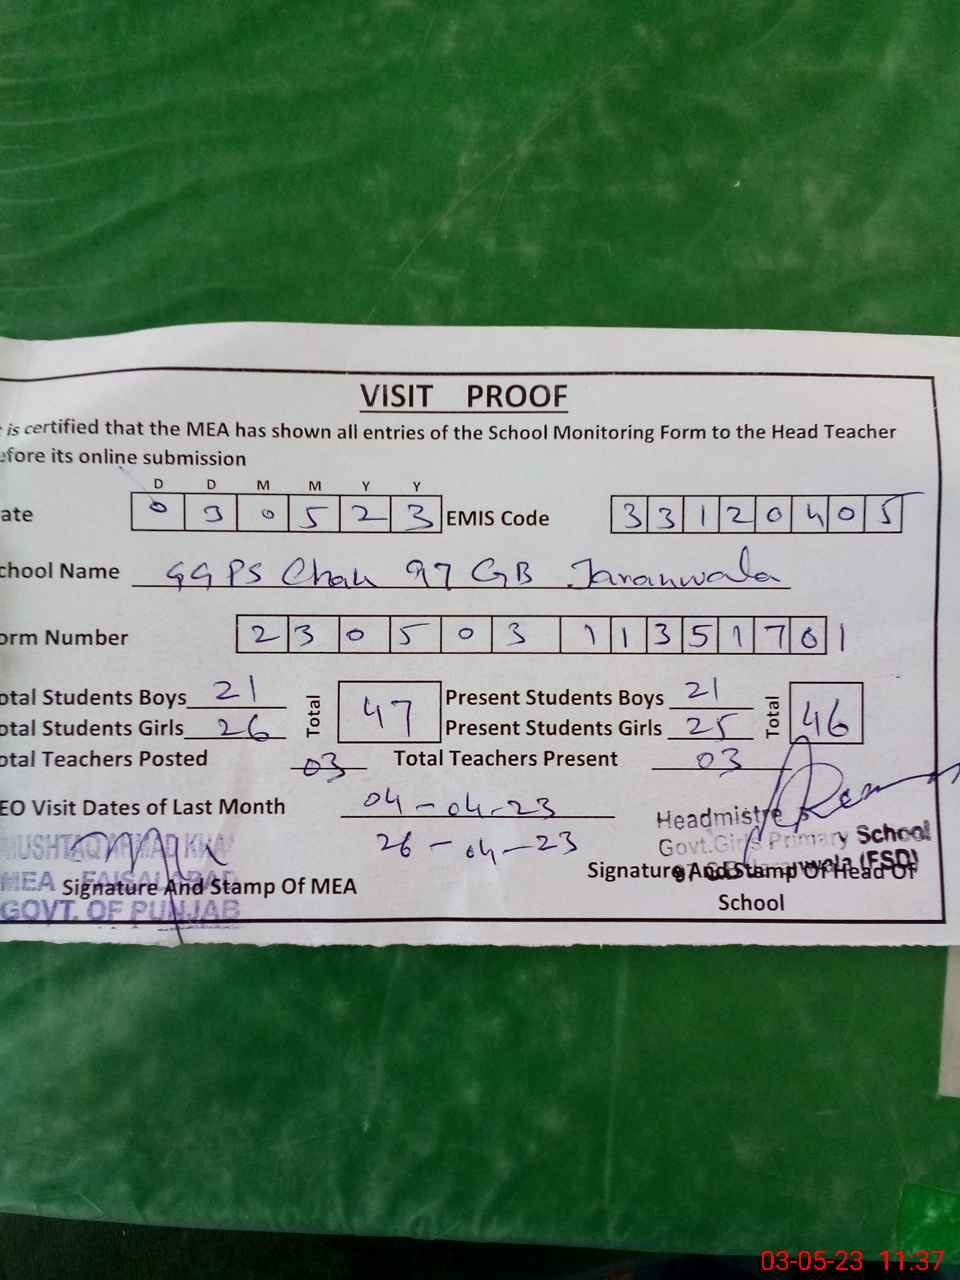 VISIT PROOF
is certified that the MEA has shown all entries of the School Monitoring Form to the Head Teacher
efore its online submission
D D M M Y Y
ate 0 3 0 5 2 3 EMIS Code 3 3 1 2 0 4 0 5
chool Name GGPS Chak 97 GB Jaranwala
orm Number 2 3 0 5 0 3 1 1 3 5 1 7 0 1
otal Students Boys 21 Total 47 Present Students Boys 21 Total 46
otal Students Girls 26 Present Students Girls 25
otal Teachers Posted 03 Total Teachers Present 03
EO Visit Dates of Last Month 04-04-23
26-04-23
MUSHTAQ AHMAD KHAN
MEA FAISALABAD
GOVT. OF PUNJAB
Signature And Stamp Of MEA
Headmistress
Govt. Girls Primary School
97 GB Jaranwala (FSD)
Signature And Stamp Of Head Of
School
03-05-23 11:37